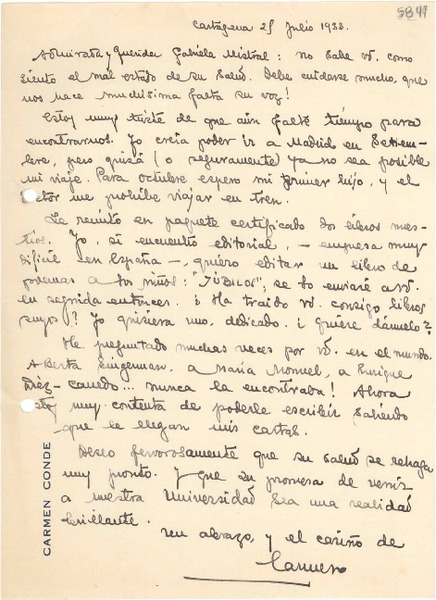 5849
Cartagena 25 Julio 1933.
Admirada y querida Gabriela Mistral: no sabe vd. como
siento el mal estado de su salud. Debe cuidarse mucho, que
nos hace muchísima falta su voz!
Estoy muy triste de que aún falte tiempo para
encontrarnos. Yo creía poder ir a Madrid en Settiem-
bre, pero quizá (o seguramente) ya no sea posible
mi viaje. Para octubre espero mi primer hijo, y el
me prohibe viajar en tren.
Le remito en paquete certificado dos libros nues-
tros. Yo, si encuentro editorial, - empresa muy
difícil en España -, quiero editar un libro de
poemas a los niños: "JÚBILOS"; se lo enviaré a vd.
en seguida entonces. ¿Ha traido vd. consigo libros
suyos? Yo quisiera uno, dedicado. ¿quiere dármelo?
He preguntado muchas veces por vd. en el mundo.
A Berta Singerman, a María Monvel, a Enrique
Díez-Canedo... nunca la encontraba! Ahora
estoy muy contenta de poderle escribir sabiendo
que le llegan mis cartas.
Deseo fervorosamente que su salud se rehaga
muy pronto. Y que su promesa de venir
a nuestra Universidad sea una realidad
brillante.
Un abrazo, y el cariño de
Carmen
CARMEN CONDE